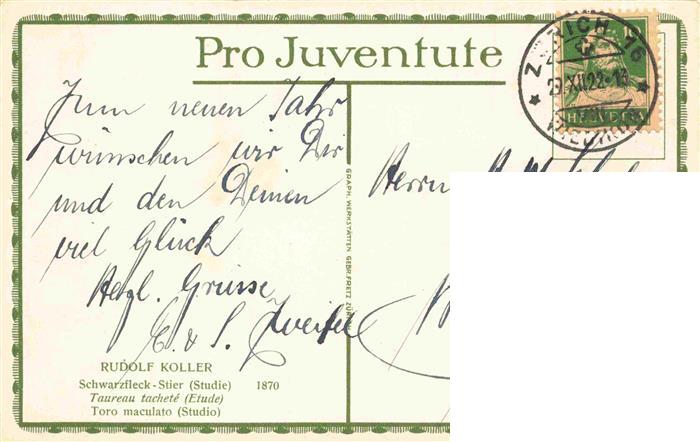 Pro Juventute
ZÜRICH 16
29.XII.22-13
HELVETIA
Zum neuen Jahr
wünschen wir Dir
und den Deinen
viel Glück
Herzl. Grüsse
E. & S. Zweifel
Herrn
GRAPH. WERKSTÄTTEN GEBR. FRETZ ZÜRICH
RUDOLF KOLLER
Schwarzfleck-Stier (Studie) 1870
Taureau tacheté (Etude)
Toro maculato (Studio)